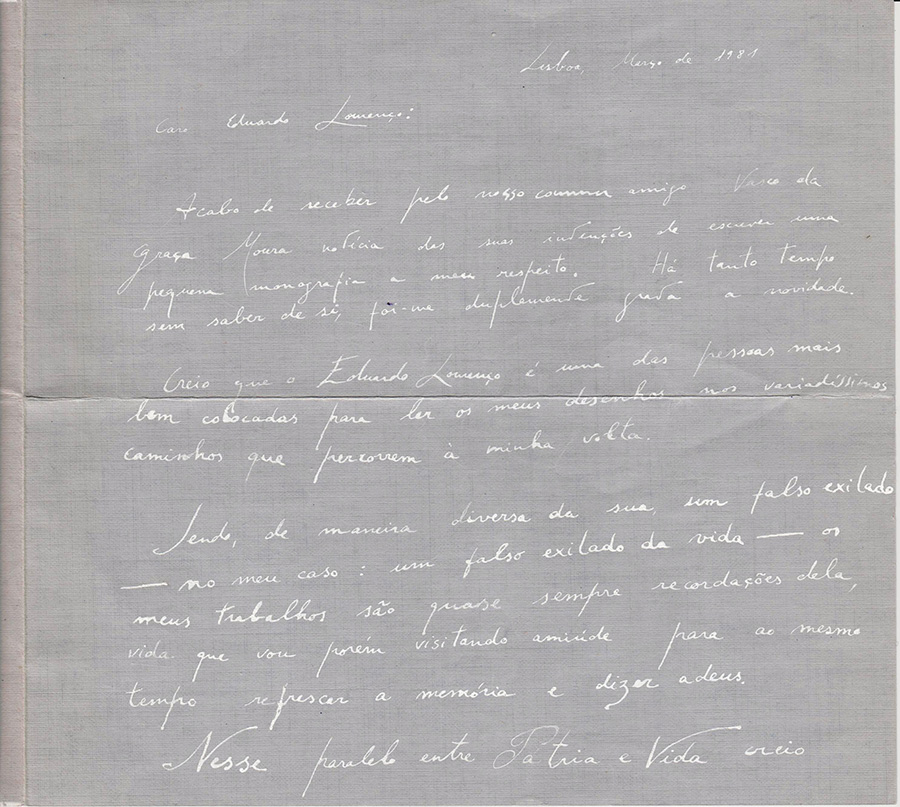 Lisboa, Março de 1981
Caro Eduardo Lourenço:
Acabo de receber pelo nosso comum amigo Vasco da
Graça Moura notícia das suas intenções de escrever uma
pequena monografia a meu respeito. Há tanto tempo
sem saber de si, foi-me duplamente grata a novidade.
Creio que o Eduardo Lourenço é uma das pessoas mais
bem colocadas para ler os meus desenhos nos variadíssimos
caminhos que percorrem à minha volta.
Sendo, de maneira diversa da sua, um falso exilado
— no meu caso: um falso exilado da vida — os
meus trabalhos são quase sempre recordações dela,
vida que vou porém visitando amiúde para ao mesmo
tempo refrescar a memória e dizer adeus.
Nesse paralelo entre Pátria e Vida creio